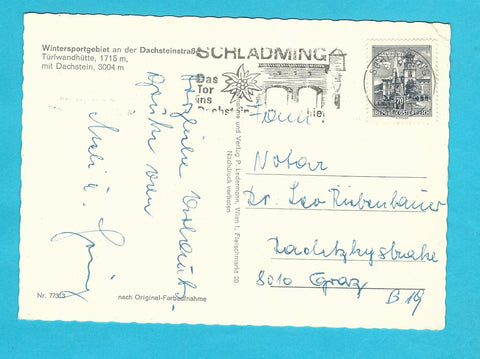 Wintersportgebiet an der Dachsteinstraße
Türlwandhütte, 1715 m,
mit Dachstein, 3004 m
SCHLADMING
Das
Tor
ins
Dachstein
Herzliche
Grüße von
Fam.
Notar
Dr. Leo Rübenbauer
Radetzkystraße
8010 Graz
B 19
und Verlag P. Ledermann, Wien 1, Fleischmarkt 20
Nachdruck verboten
Nr. 77313
nach Original-Farbaufnahme